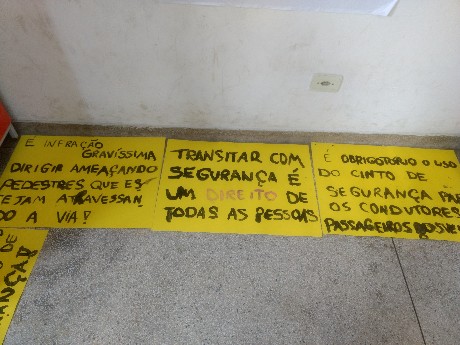 É INFRAÇÃO
GRAVÍSSIMA
DIRIGIR AMEAÇANDO
PEDESTRES QUE ES
TEJAM ATRAVESSAN
DO A VIA!
TRANSITAR COM
SEGURANÇA É
UM DIREITO DE
TODAS AS PESSOAS
É OBRIGATÓRIO O USO
DO CINTO DE
SEGURANÇA PA
OS CONDUTORES
PASSAGEIROS
DE